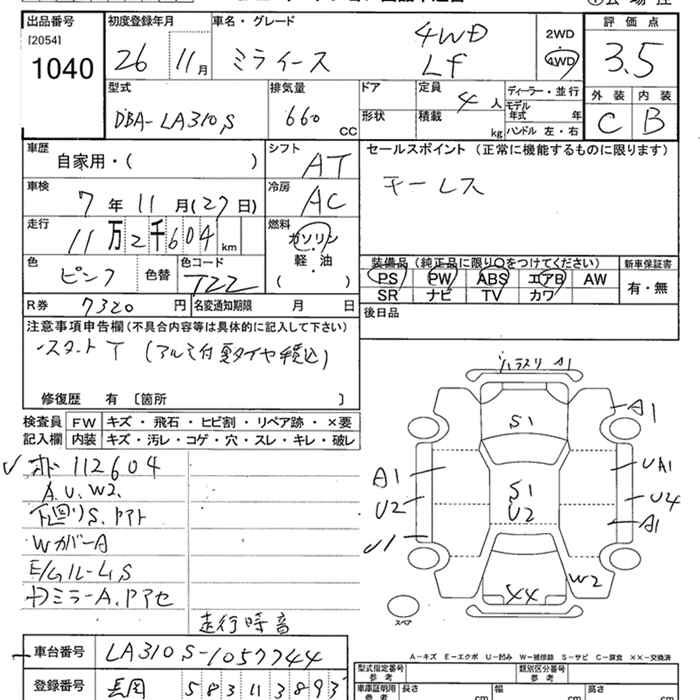 出品番号 初度登録年月 車名・グレード 評価点
[2054]
1040 26 11月 ミライース 4WD Lf 2WD 4WD 3.5
型式 排気量 ドア 定員 4人 ディーラー・並行 外装 内装
DBA-LA310S 660 CC 形状 積載 kg モデル年式 年 C B
ハンドル 左・右
車歴 シフト セールスポイント(正常に機能するものに限ります)
自家用・( ) AT キーレス
車検 冷房
7年 11月(27日) AC
走行 燃料
11万2千604km ガソリン
軽・油
( )
色 ピンク 色替 色コード T22
装備品(純正品に限り○をつけてください) 新車保証書
PS PW ABS エアB AW 有・無
SR ナビ TV カワ
R券 7320円 名変通知期限 月 日 後日品
注意事項申告欄(不具合内容等は具体的に記入して下さい)
スタートT (アルミ付夏タイヤ積込)
修復歴 有 〔箇所 〕
検査員 FW キズ・飛石・ヒビ割・リペア跡・×要
記入欄 内装 キズ・汚レ・コゲ・穴・スレ・キレ・破レ
112604
A.U.W2.
下回りS.アト
WカバーA
E/Gルーム S
ミラーA.アアセ
走行時音
A1
S1
A1
U2
S1
U2
UA1
U4
A1
U1
W2
XX
スペア
A-キズ E-エクボ U-凹み W-補修跡 S-サビ C-腐食 ××-交換済
車台番号 LA310S-1057744
登録番号 長岡 583 1 3893
型式指定番号 参考 類別区分番号 参考
車庫証明用 参考 長さ cm 幅 cm 高さ cm